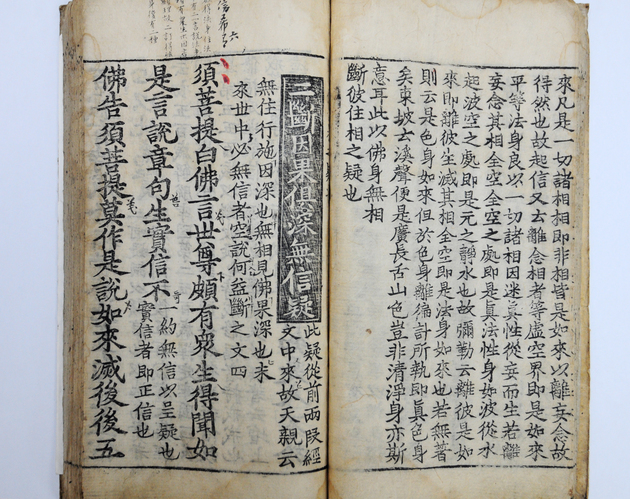 來凡是一切諸相相即非相皆是如來以離妄念故
得然也故起信又云離念相者等虛空界即是如來
平等法身良以一切諸相因迷真性從妄而生若離
妄念其相全空全空之處即是真法性身如波從水
起波空之處即是元之靜水也故彌勒云離彼是如
來即離彼生滅其相全空即是法身如來也若無著
則云是色身如來但於色身離徧計所執即真色身
矣東坡云溪聲便是廣長舌山色豈非清淨身亦斯
意耳此以佛身無相
斷彼住相之疑也
二斷因果俱深無信疑
此疑從前兩段經
文中來故天親云
無住行施因深也無相見佛果深也未
來世中必無信者空說何益斷之文四
須菩提白佛言世尊頗有衆生得聞如
是言說章句生實信不
一約無信以呈疑也
實信者即正信也
佛告須菩提莫作是說如來滅後後五